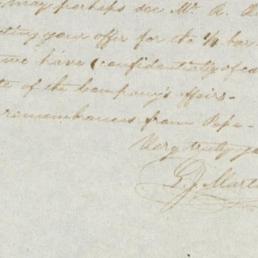 may perhaps see Mr. A.
your offer for the
we have (confidentially of co
of the Company's affairs -
remembrances from Papa -
Very truly yo
G. J. Mart